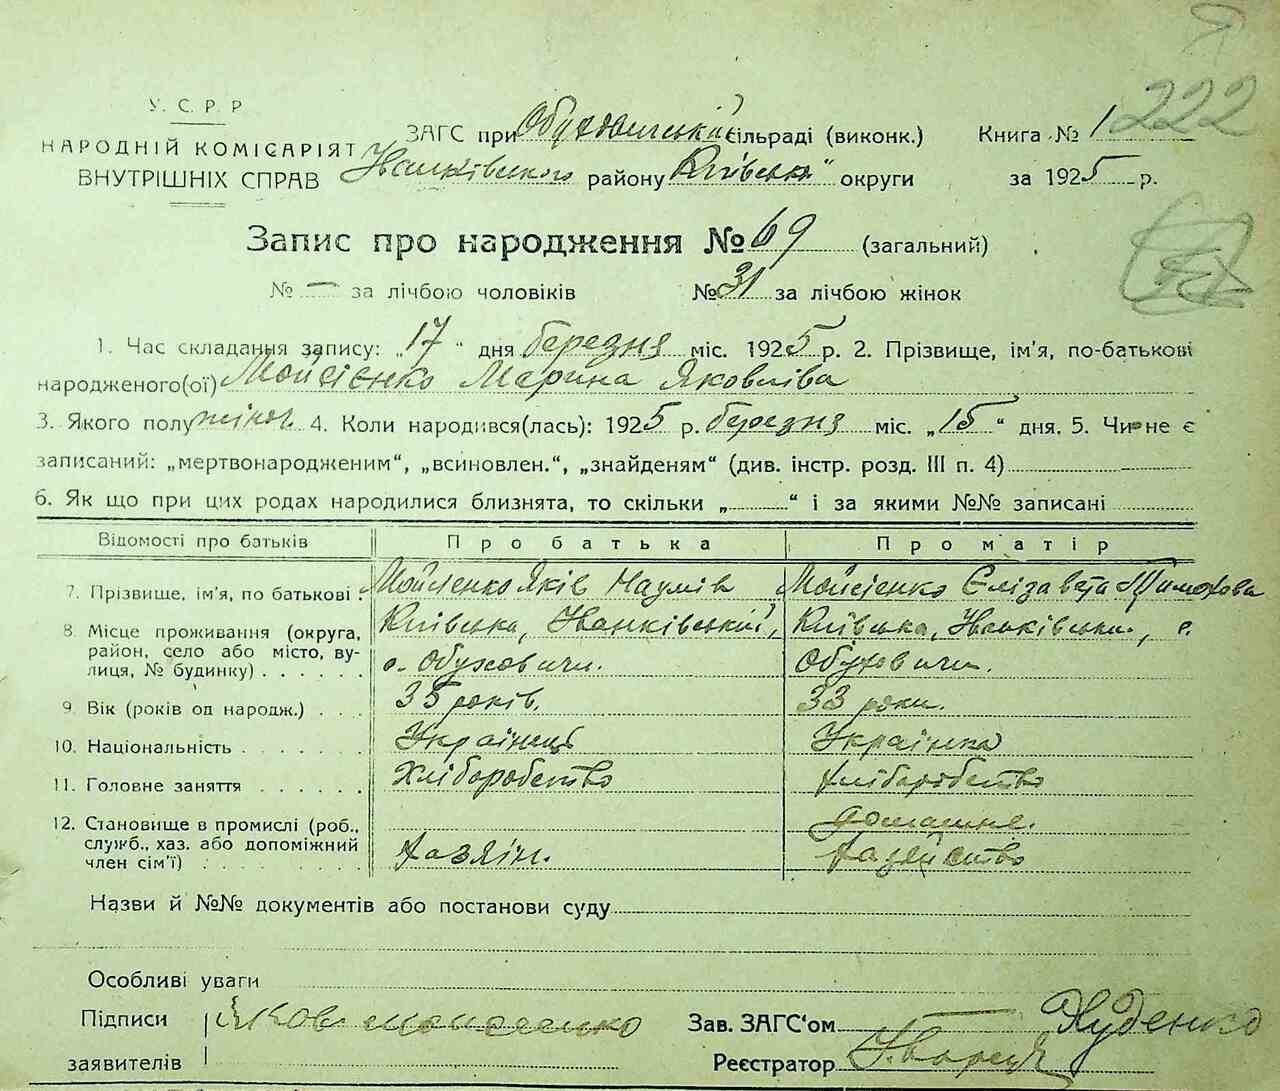 222
У. С. Р. Р
НАРОДНІЙ КОМІСАРІЯТ
ВНУТРІШНІХ СПРАВ
ЗАГС при Обуховичській сільраді (виконк.) Книга № 1
Іванківського району Київськ" округи за 1925 р.
Запис про народження № 69 (загальний)
№ — за лічбою чоловіків № 31 за лічбою жінок
1. Час складання запису: „17" дня березня міс. 1925 р. 2. Прізвище, ім'я, по-батькові
народженого(ої) Мойсієнко Марина Яковліва
3. Якого полу жіноч. 4. Коли народився(лась): 1925 р. березня міс. „15" дня. 5. Чи не є
записаний: „мертвонародженим", „всиновлен.", „знайденям" (див. інстр. розд. III п. 4)
6. Як що при цих родах народилися близнята, то скільки „ " і за якими №№ записані
Відомості про батьків Про батька Про матір
7. Прізвище, ім'я, по батькові . Мойсієнко Яків Наумів Мойсієнко Єлізавета Тимохова
8. Місце проживання (округа, район, село або місто, вулиця, № будинку) Київська, Іванківський, с. Обуховичи. Київська, Іванківськи., с. Обуховичи.
9. Вік (років од народж.) 35 років. 33 роки.
10. Національність Українець Українка
11. Головне заняття Хліборобство хліборобство
12. Становище в промислі (роб., служб., хаз. або допоміжний член сім'ї) хазяїн. домашнє. хазяйство
Назви й №№ документів або постанови суду
Особливі уваги
Підписи Яков Зав. ЗАГС'ом
заявителів Реєстратор